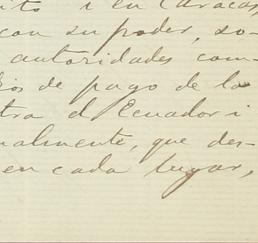 i en Caracas,
con su poder, so-
autoridades com-
ios de pago de la
tra el Ecuador i
ualmente, que des-
en cada lugar,